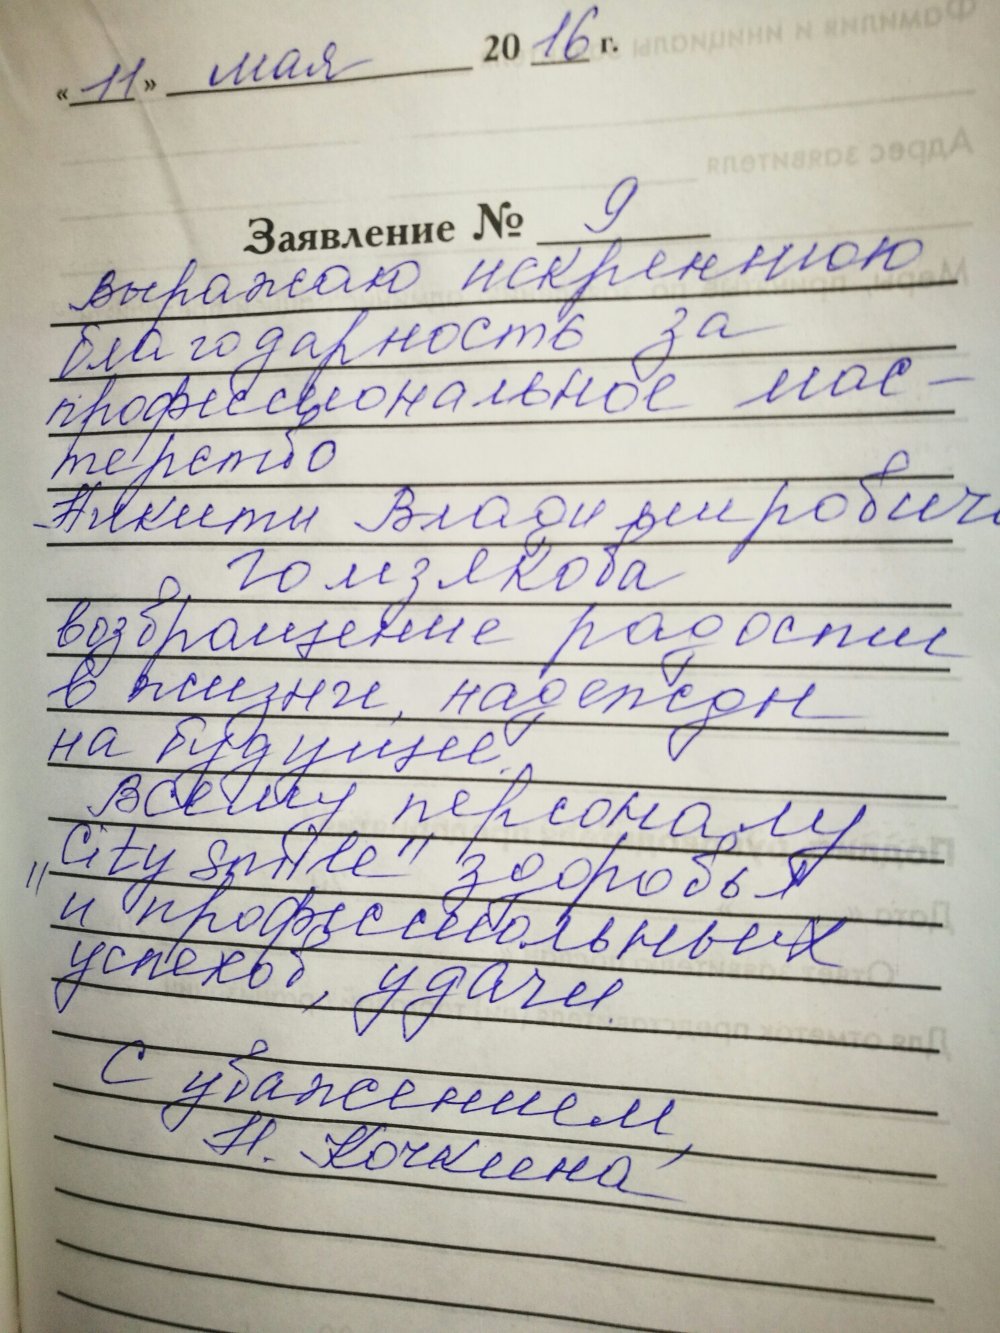 « 11 » мая 20 16 г.
Заявление № 9
выражаю искреннюю
благодарность за
профессиональное мас-
терство
Никити Владимировича
Гомзякова
возвращение радости
в жизни, надежды
на будущее.
Всему персоналу
"City Smile" здоровья
и профессиональных
успехов, удачи.
С уважением,
Н. Кочкина
Фамилия и инициалы
Адрес заявителя